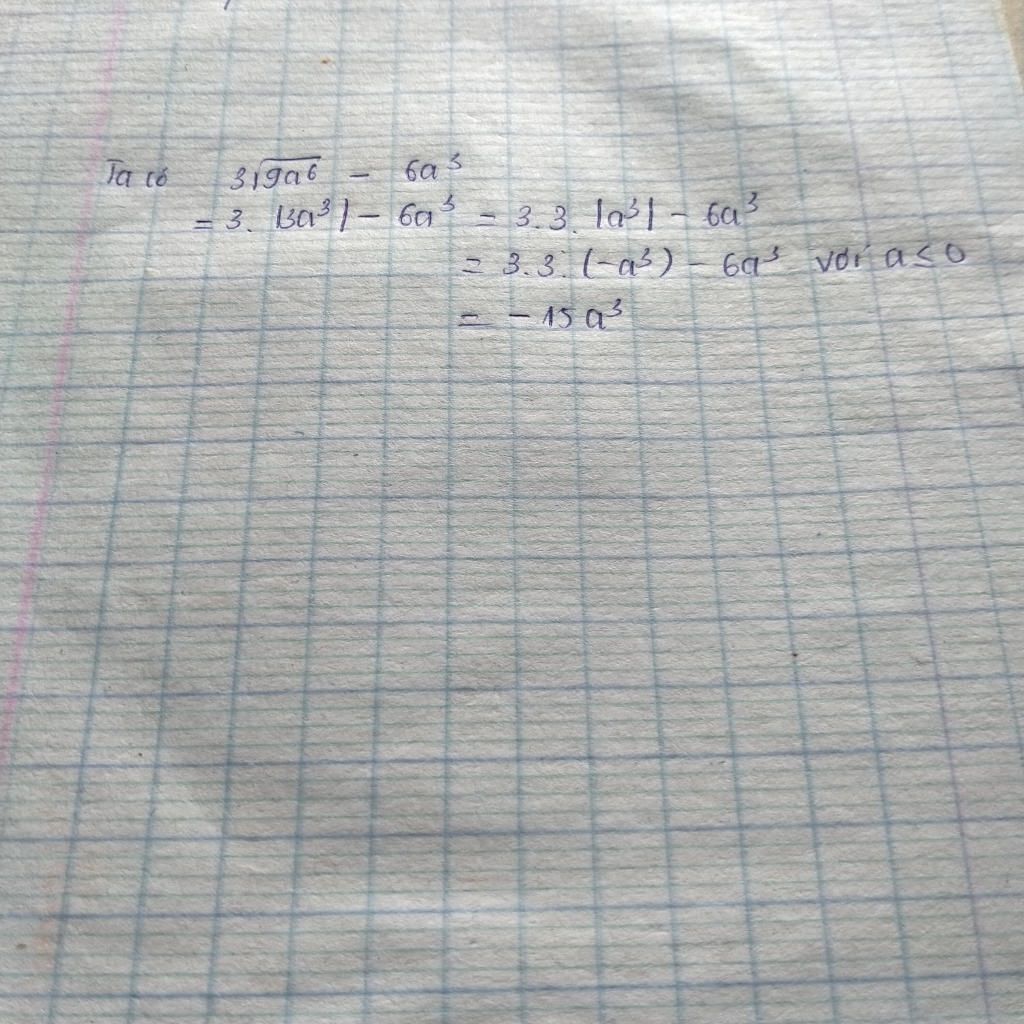 Ta có 3√9a⁶ - 6a³
= 3. |3a³| - 6a³ = 3.3. |a³| - 6a³
= 3.3. (-a³) - 6a³ với a ≤ 0
= -15a³